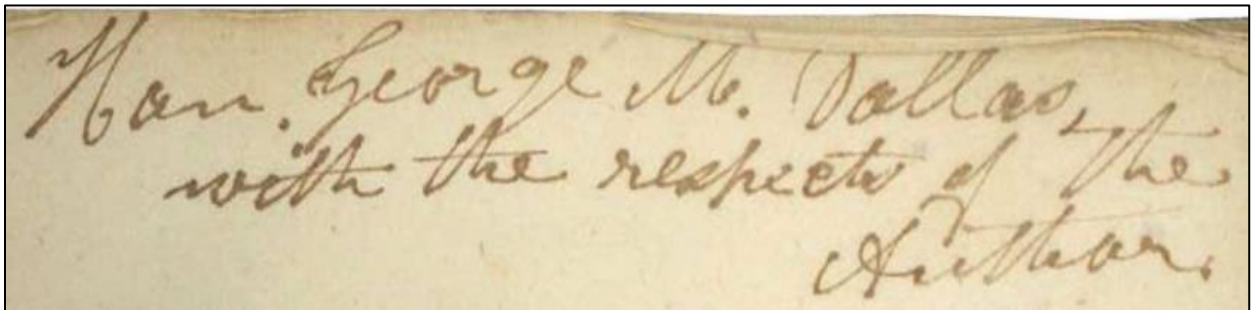 Hon. George M. Dallas,
with the respects of the
Author.